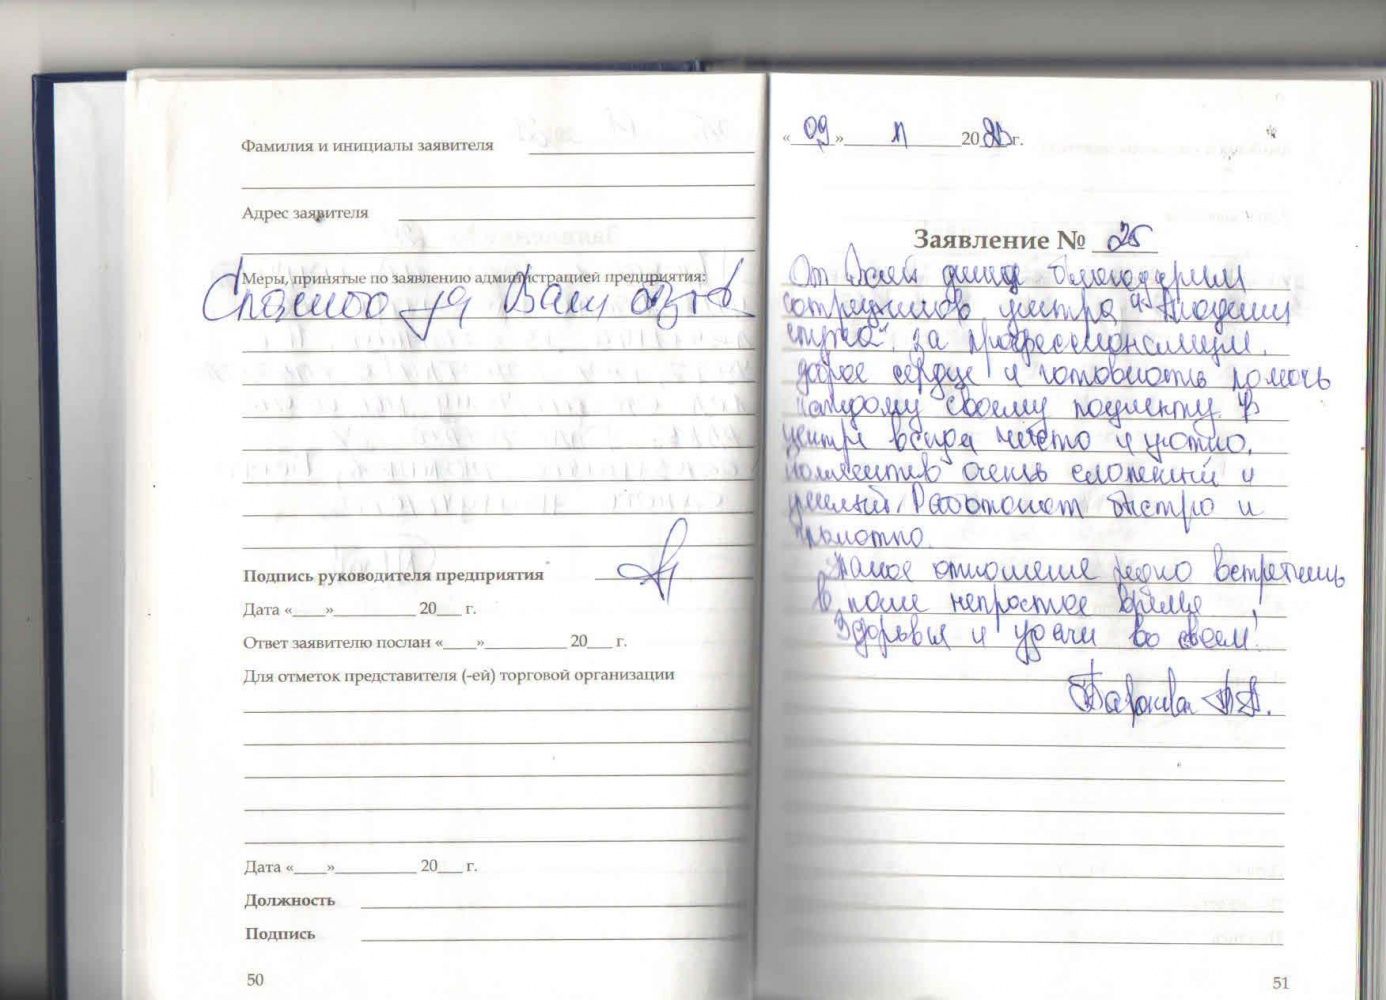 Фамилия и инициалы заявителя
Адрес заявителя
Меры, принятые по заявлению администрацией предприятия:
Спасибо за Ваш отзыв
Подпись руководителя предприятия
Дата «___»__________ 20___ г.
Ответ заявителю послан «____»__________ 20___ г.
Для отметок представителя (-ей) торговой организации
Дата «____»__________ 20___ г.
Должность
Подпись
50
«09» 11 20 г.
Заявление № 25
От всей души благодарим
сотрудников центра
за профессионализм,
доброе сердце и готовность помочь
каждому своему пациенту. В
центре всегда чисто и уютно.
Коллектив очень сложенный и
умелый. Работают быстро и
грамотно.
Такое отношение редко встретишь
в наше непростое время!
Здоровья и удачи во всем!
51